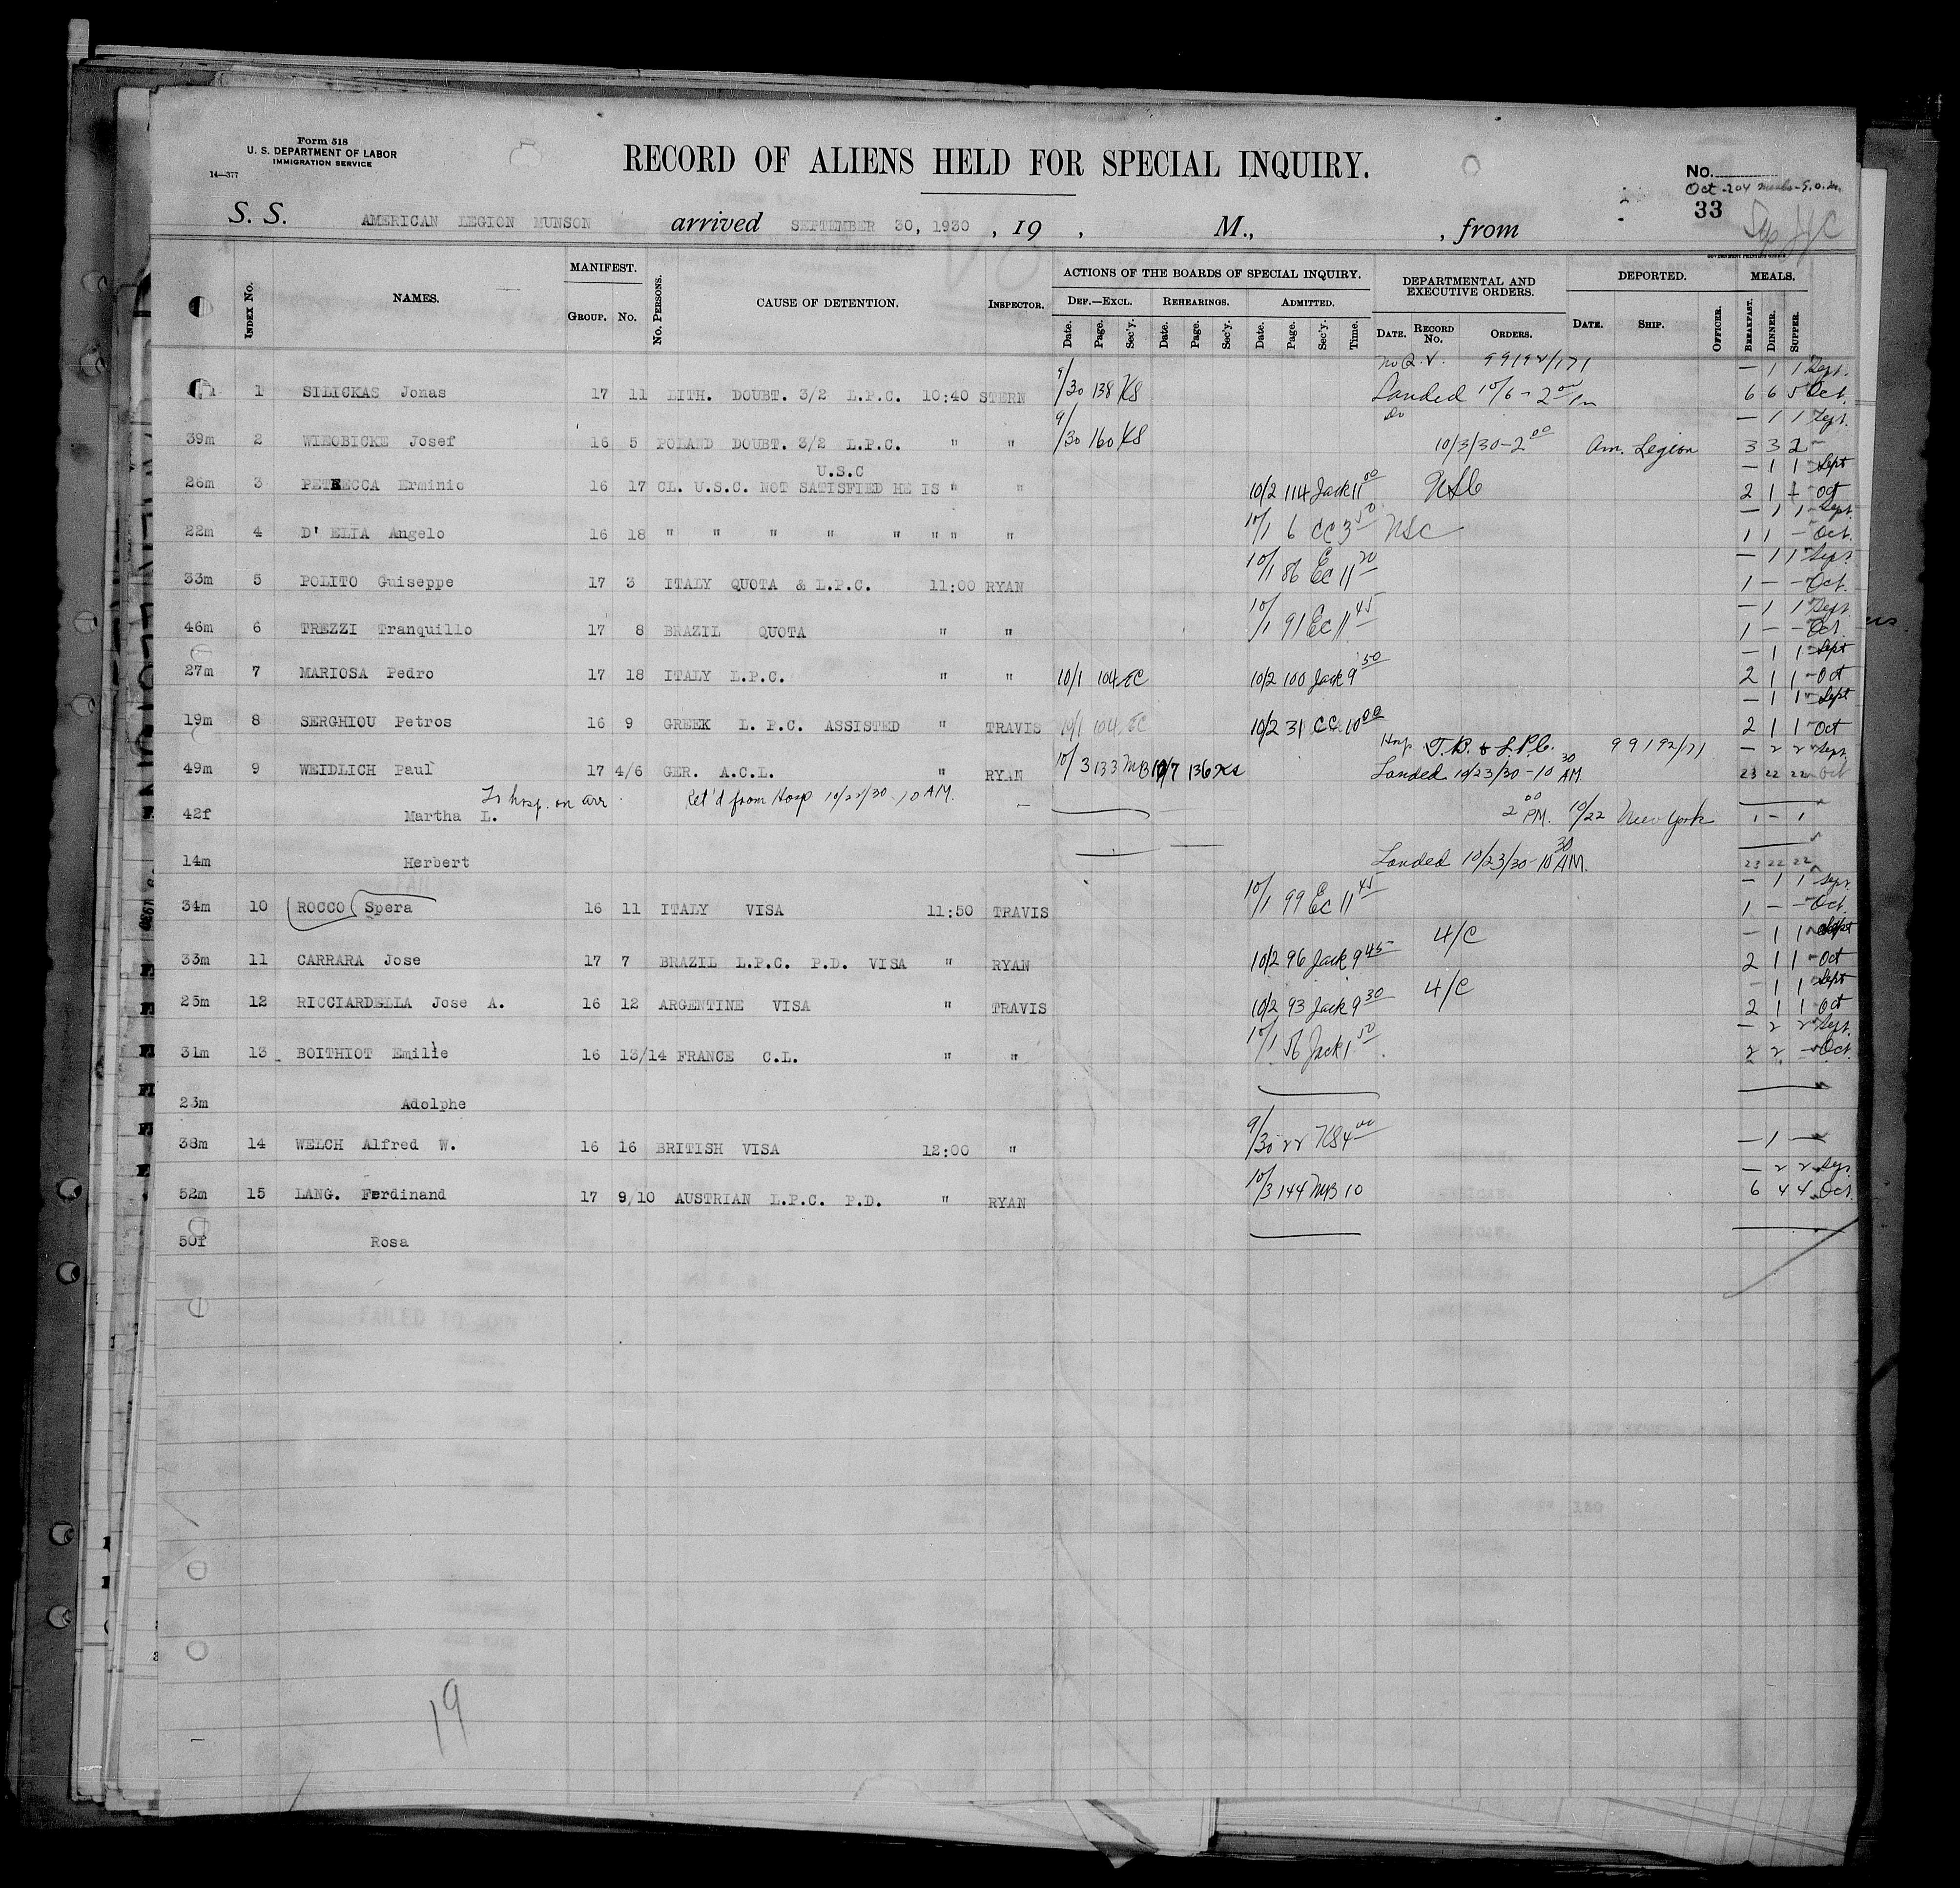 Form 518
U. S. DEPARTMENT OF LABOR
IMMIGRATION SERVICE
14—377
RECORD OF ALIENS HELD FOR SPECIAL INQUIRY.
No.
Oct-204 meals-
33
S. S. AMERICAN LEGION MUNSON arrived SEPTEMBER 30, 1930, 19 , M., , from
INDEX No. NAMES. MANIFEST. GROUP. No. No. PERSONS. CAUSE OF DETENTION. INSPECTOR. ACTIONS OF THE BOARDS OF SPECIAL INQUIRY. DEPARTMENTAL AND EXECUTIVE ORDERS. DEPORTED. MEALS.
DEF.—EXCL. REHEARINGS. ADMITTED.
Date. Page. Sec'y. Date. Page. Sec'y. Date. Page. Sec'y. Time. DATE. RECORD No. ORDERS. DATE. SHIP. OFFICER. BREAKFAST. DINNER. SUPPER.
99192/171 — 1 1 Sept.
1 SILICKAS Jonas 17 11 LITH. DOUBT. 3/2 L.P.C. 10:40 STERN 9/30 138 KS Landed 10/6 - 2 00 6 6 5 Oct.
Do — 1 1 Sept.
39m 2 WIEOBICKE Josef 16 5 POLAND DOUBT. 3/2 L.P.C. " " 9/30 160 KS 10/3/30-2 00 Am. Legion 3 3 2
U.S.C — 1 1 Sept
26m 3 PETRECCA Erminio 16 17 CL. U.S.C. NOT SATISFIED HE IS " " 10/2 114 Jack 11 00 USC 2 1 Oct
— 1 1 Sept.
22m 4 D' ELIA Angelo 16 18 " " " " " " " " 10/1 6 CC 3 50 USC 1 1 — Oct.
— 1 1 Sept
33m 5 POLITO Guiseppe 17 3 ITALY QUOTA & L.P.C. 11:00 RYAN 10/1 86 EC 11 20 1 — — Oct.
— 1 1 Sept
46m 6 TREZZI Tranquillo 17 8 BRAZIL QUOTA " " 10/1 91 EC 11 45 1 — — Oct.
— 1 1 Sept
27m 7 MARIOSA Pedro 17 18 ITALY L.P.C. " " 10/1 104 EC 10/2 100 Jack 9 50 2 1 1 Oct
— 1 1 Sept
19m 8 SERGHIOU Petros 16 9 GREEK L. P. C. ASSISTED " TRAVIS 10/1 104 EC 10/2 31 CC 10 00 2 1 1 Oct
Hosp T.B. & L.P.C. 99192/71 — 2 2 Sept.
49m 9 WEIDLICH Paul 17 4/6 GER. A.C.L. " RYAN 10/3 133 MB 10/7 136 KS Landed 10/23/30 - 10 30 AM 23 22 22 Oct
To hosp. on arr. Ret'd from Hosp 10/22/30 - 10 AM.
42f Martha L. 2 00 PM. 10/22 New York 1 - 1
14m Herbert Landed 10/23/30 - 10 30 AM. 23 22 22
— 1 1 Sept.
34m 10 ROCCO Spera 16 11 ITALY VISA 11:50 TRAVIS 10/1 99 EC 11 45 1 — — Oct.
4/C — 1 1 Sept
33m 11 CARRARA Jose 17 7 BRAZIL L.P.C. P.D. VISA " RYAN 10/2 96 Jack 9 45 2 1 1 Oct
4/C — 1 1 Sept
25m 12 RICCIARDELLA Jose A. 16 12 ARGENTINE VISA " TRAVIS 10/2 93 Jack 9 30 2 1 1 Oct
— 2 2 Sept.
31m 13 BOITHIOT Emilie 16 13/14 FRANCE C.L. " " 10/1 56 Jack 1 50 2 2 — Oct.
23m Adolphe
38m 14 WELCH Alfred W. 16 16 BRITISH VISA 12:00 " 9/30 22 KS 4 00 — 1 —
— 2 2 Sep
52m 15 LANG. Ferdinand 17 9/10 AUSTRIAN L.P.C. P.D. " RYAN 10/3 144 MB 10 6 4 4 Oct.
50f Rosa
19